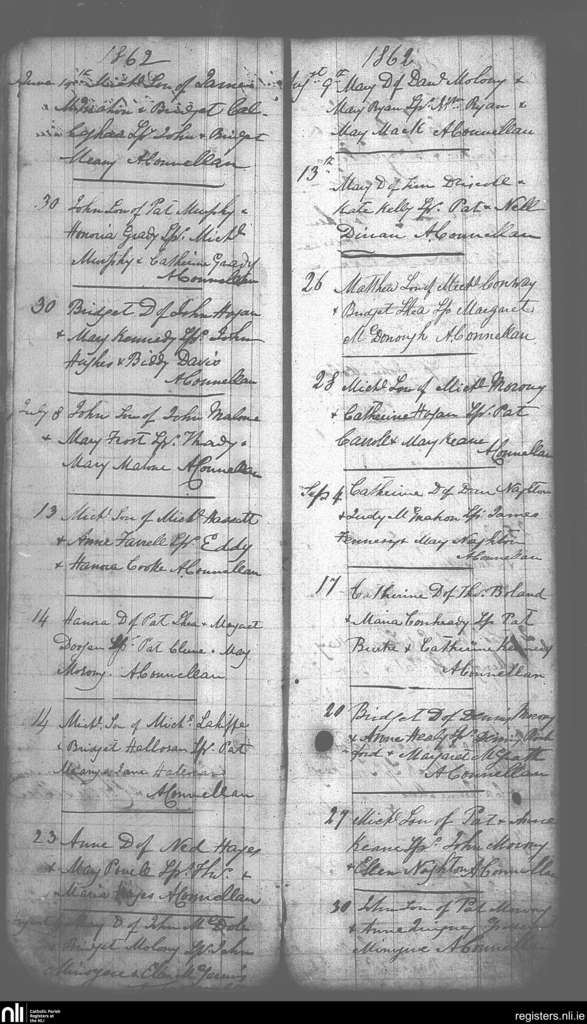 1862
June 19th Michl Son of James
McMahon & Bridget Cal-
Sps John & Bridget
Meany AConnellan
30 John Son of Pat Murphy &
Honoria Grady Sps Michl
Murphy & Catherine Grady
AConnellan
30 Bridget D of John Hogan
& Mary Kennedy Sps John
Hughes & Biddy Davis
AConnellan
July 8 John Son of John Malone
& Mary Frost Sps Thady &
Mary Malone AConnellan
13 Michl Son of Michl Hassett
& Anne Farrell Sps Eddy
& Hanora Cooke AConnellan
14 Hanora D of Pat Shea & Margaret
Sps Pat Clune & May
Morony. AConnellan
14 Michl Son of Michl
& Bridget Halloran Sps Pat
Meany & Jane
AConnellan
23 Anne D of Ned Hayes
& May Sps Thos &
Maria Hayes AConnellan
D of John
& Bridget Molony Sps John
Minogue & Ellen
1862
9th May D of Danl Molony &
Mary Ryan Sps Wm Ryan &
May Mack AConnellan
13th
May D of Tim Driscoll &
Kate Kelly Sps Pat & Nell
Dinan AConnellan
26 Matthew Son of Michl Conway
& Bridget Shea Sps Margaret
McDonough AConnellan
28 Michl Son of Michl Morony
& Catherine Hogan Sps Pat
Carroll & May Keane
AConnellan
Sept 4 Catherine D of Dan Naghton
& Judy McMahon Sps James
Hennessy & May Naghton
AConnellan
17 Catherine D of Thos Boland
& Maria Conheady Sps Pat
Burke & Catherine Kennedy
AConnellan
20 Bridget D of Denis Morony
& Anne Healy Sps
& Margaret McGrath
AConnellan
27 Michl Son of Pat & Anne
Keane Sps John Morony
& Ellen Naghton AConnellan
30 John Son of Pat Morony
& Anne
Minogue AConnellan
nli
Catholic Parish
Registers at
the NLI
registers.nli.ie